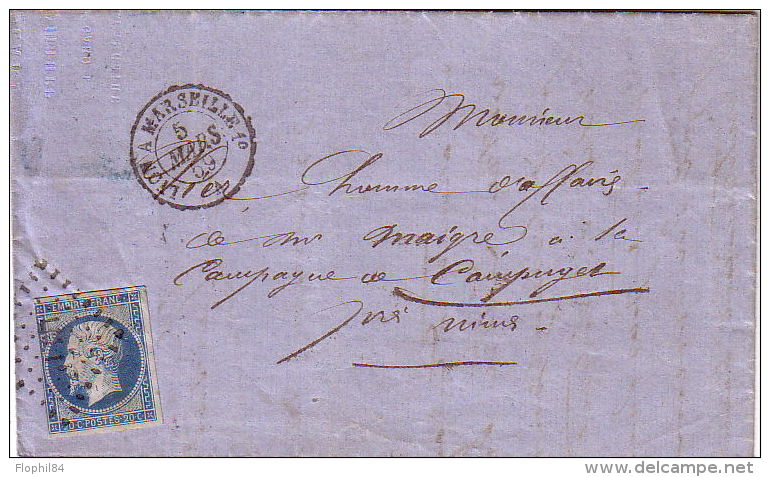 LYON A MARSEILLE 1º
5
MARS
59
Monsieur
homme d'affaire
de mr maigre a la
Campagne de Campuget
près nimes
EMPIRE FRANC.
20 C. POSTES 20 C.
Flophil84
delcampe.net